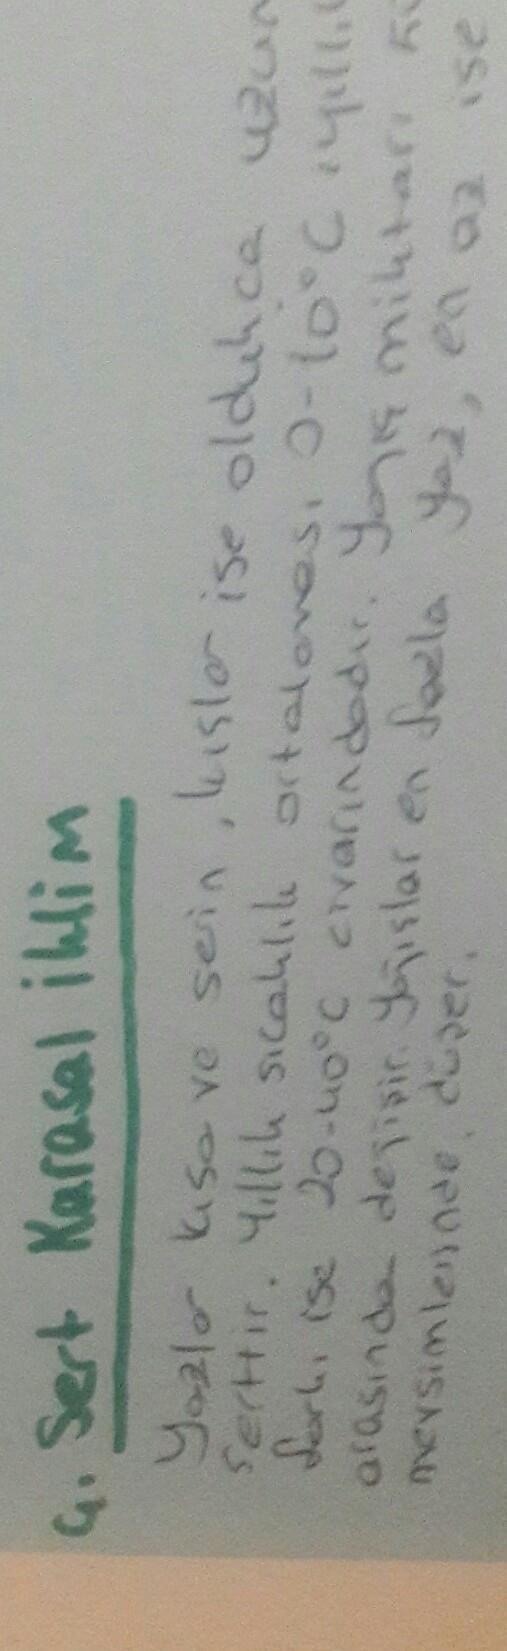 4. Sert Karasal iklim
Yazlar kısa ve serin, kışlar ise oldukca uzun
serttir. Yıllık sıcaklık ortalaması 0-10°C, yıllı
farkı ise 20-40°C civarındadır. Yağış miktarı
arasında değişir. Yağışlar en fazla yaz, en az ise
mevsimlerinde düşer.